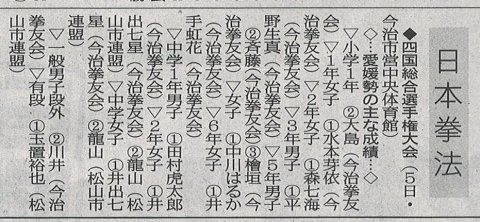 日本拳法
◆四国総合選手権大会（５日・
今治市営中央体育館）
◇…愛媛勢の主な成績…◇
▽小学１年　②大島（今治拳友
会）▽１年女子　①水木芽依（今
治拳友会）▽２年女子　①森七海
（今治拳友会）▽３年男子　①平
野生真（今治拳友会）▽５年男子
②斉藤（今治拳友会）③檜垣（今
治拳友会）▽女子　①中川はるか
（今治拳友会）▽６年女子　①井
手虹花（今治拳友会）
▽中学１年男子　①田村虎太郎
（今治拳友会）▽２年女子　①井
出七星（今治拳友会）②龍山（松
山市連盟）▽中学女子　①井出七
星（今治拳友会）②龍山（松山市
連盟）
▽一般男子段外　②川井（今治
拳友会）▽有段　①玉置裕也（松
山市連盟）